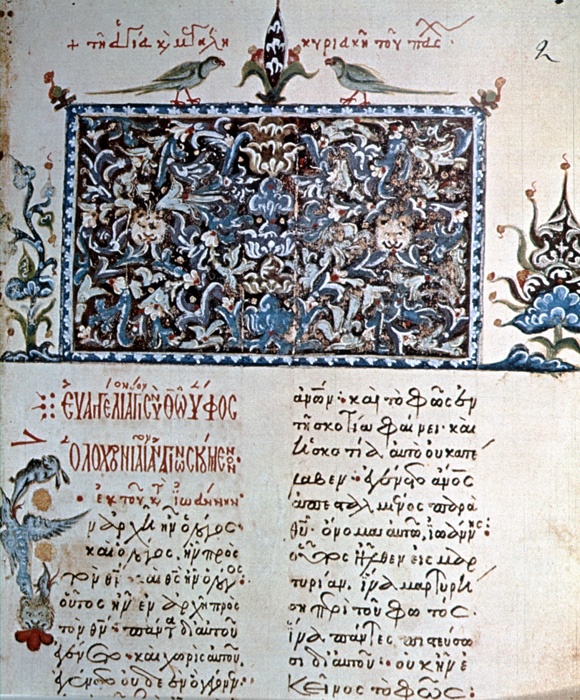 + τῆ ἁγία κ μεγάλη κυριακῆ τοῦ πάσ
2
ἐκ τοῦ κτ ἰωάννην
ν ἀρχῆ ἦν ὁ λόγος·
καὶ ὁ λόγος, ἦν πρὸς
τὸν θν· καὶ θς ἦν ὁ λόγος·
οὗτος ἦν ἐν ἀρχῆ πρὸς
τὸν θν· πάντα δι αὐτοῦ
ἐγένετο· καὶ χωρὶς αὐτοῦ,
ἐγένετο οὐδὲ ἓν ὃ γέγονεν·
ἀνων· καὶ τὸ φῶς ἐν
τῆ σκοτία φαίνει· καὶ
ἡ σκοτία αὐτὸ οὐ κατέ
λαβεν· ἐγένετο ἀνος
ἀπεσταλμένος παρὰ
θυ· ὄνομα αὐτῶ, ἰωάννης·
οὗτος ἦλθεν εἰς μαρ
τυρίαν. ἵνα μαρτυρή
ση περὶ τοῦ φωτός.
ἵνα πάντες πιστεύσω
σι δι αὐτοῦ· οὐκ ἦν ἐ
κεῖνος τὸ φῶς·